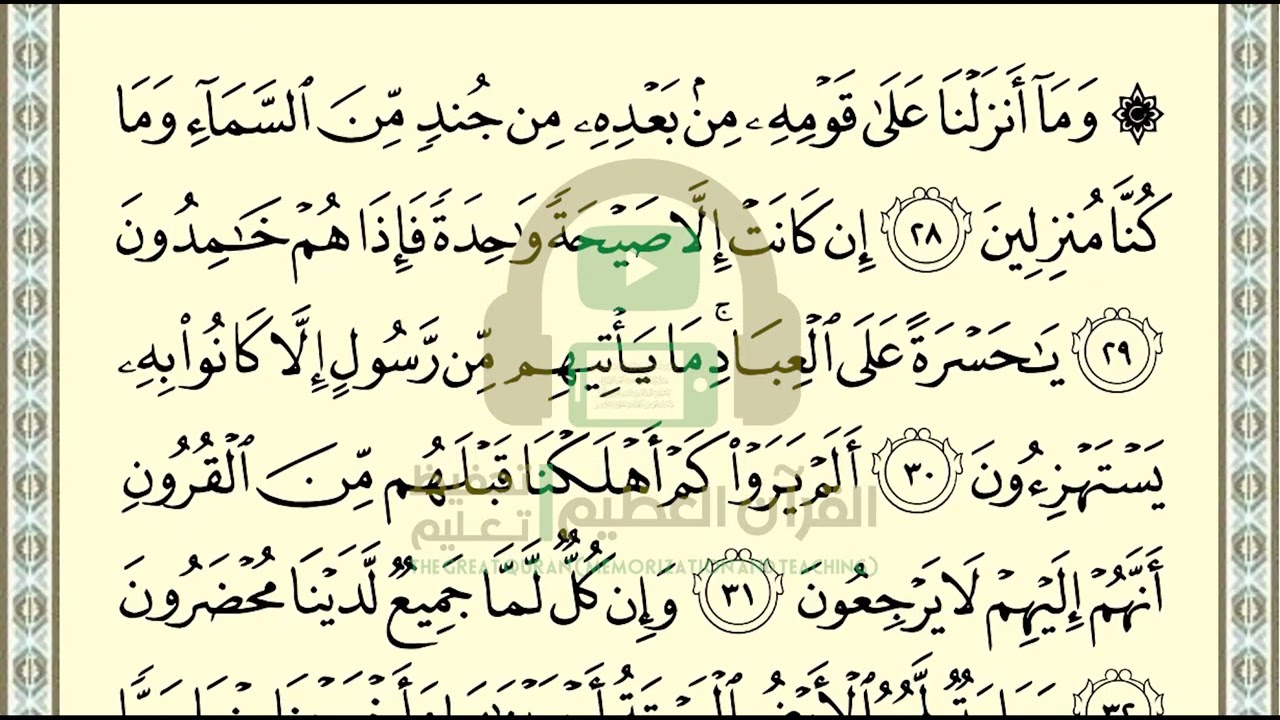 ۞ وَمَآ أَنزَلْنَا عَلَىٰ قَوْمِهِۦ مِنۢ بَعْدِهِۦ مِن جُندٍ مِّنَ ٱلسَّمَآءِ وَمَا
كُنَّا مُنزِلِينَ ٢٨ إِن كَانَتْ إِلَّا صَيْحَةً وَٰحِدَةً فَإِذَا هُمْ خَـٰمِدُونَ
٢٩ يَـٰحَسْرَةً عَلَى ٱلْعِبَادِ ۚ مَا يَأْتِيهِم مِّن رَّسُولٍ إِلَّا كَانُوا۟ بِهِۦ
يَسْتَهْزِءُونَ ٣٠ أَلَمْ يَرَوْا۟ كَمْ أَهْلَكْنَا قَبْلَهُم مِّنَ ٱلْقُرُونِ
القرآن العظيم تحفيظ تعليم
THE GREAT QURAN (MEMORIZATION AND TEACHING)
أَنَّهُمْ إِلَيْهِمْ لَا يَرْجِعُونَ ٣١ وَإِن كُلٌّ لَّمَّا جَمِيعٌ لَّدَيْنَا مُحْضَرُونَ
٣٢